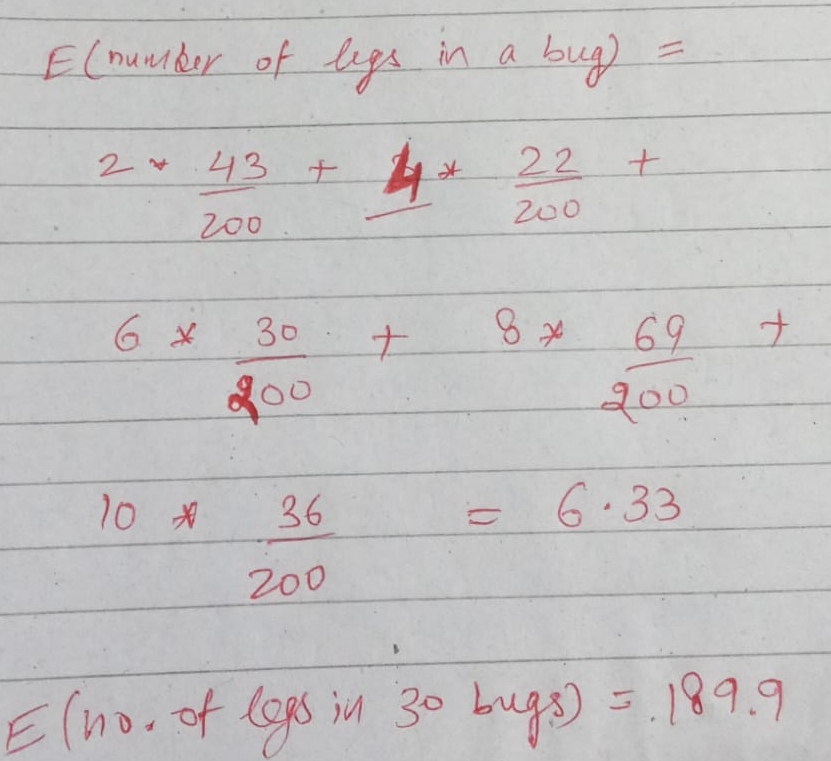 E(number of legs in a bug) =
2 * 43/200 + 4 * 22/200 +
6 * 30/200 + 8 * 69/200 +
10 * 36/200 = 6.33
E(no. of legs in 30 bugs) = 189.9